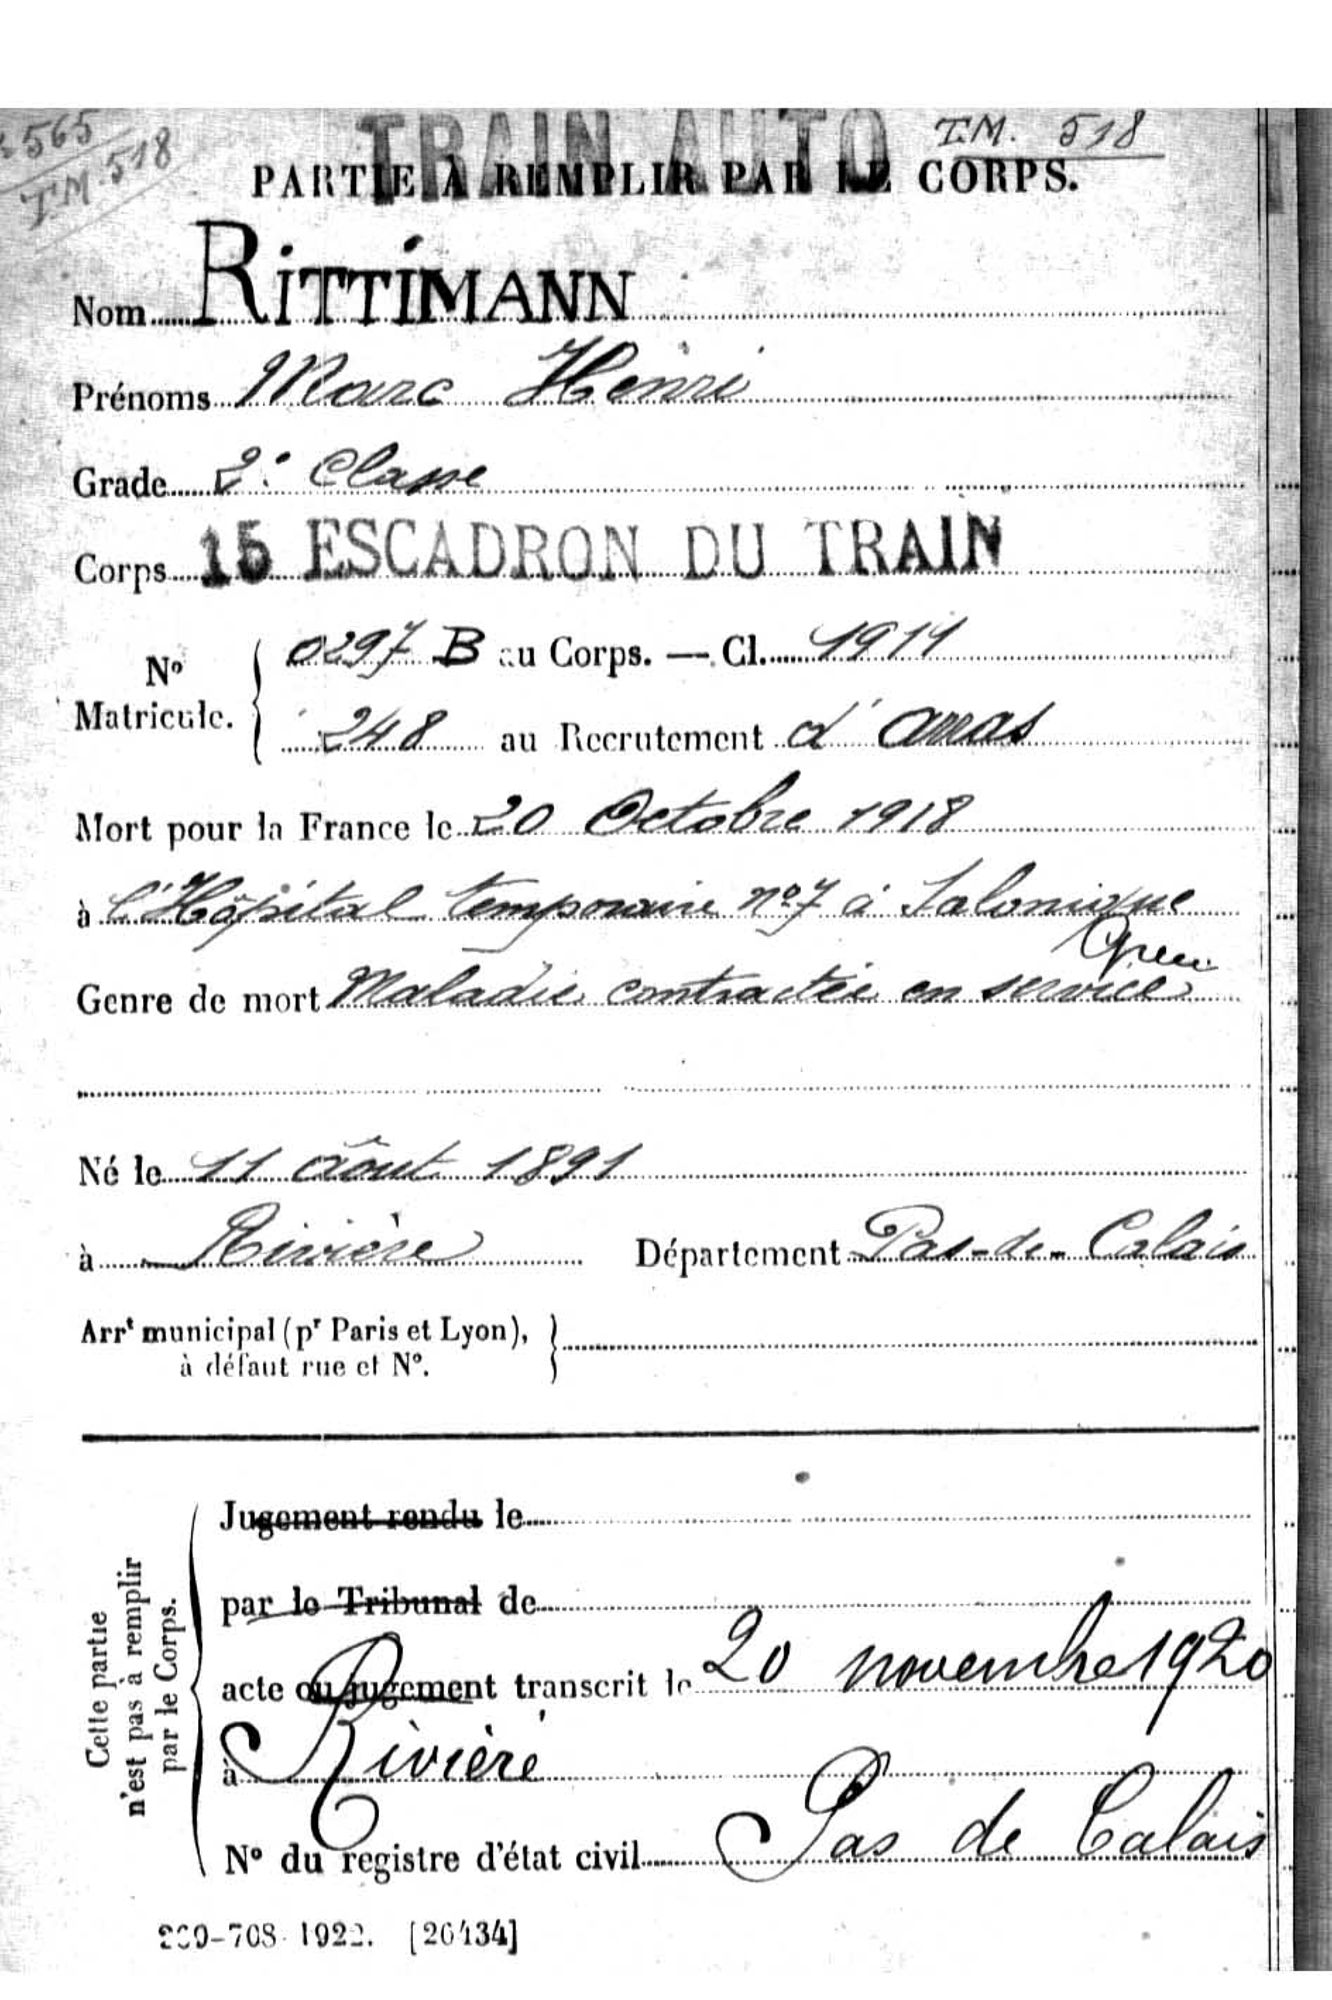 565
T.M. 518
TRAIN AUTO
T.M. 518
PARTIE À REMPLIR PAR LE CORPS.
Nom RITTIMANN
Prénoms Marc Henri
Grade 2e Classe
Corps 15 ESCADRON DU TRAIN
No Matricule. { 0297 B au Corps. — Cl. 1911
248 au Recrutement d'Arras
Mort pour la France le 20 Octobre 1918
à l'Hôpital temporaire no 7 à Salonique
Genre de mort Maladie contractée en service
Né le 11 Août 1891
à Rivière Département Pas-de-Calais
Arrt municipal (pr Paris et Lyon), }
à défaut rue et No.
Cette partie
n'est pas à remplir
par le Corps.
Jugement rendu le
par le Tribunal de
acte ou jugement transcrit le 20 novembre 1920
à Rivière
No du registre d'état civil Pas de Calais
-708-1922. [26434]